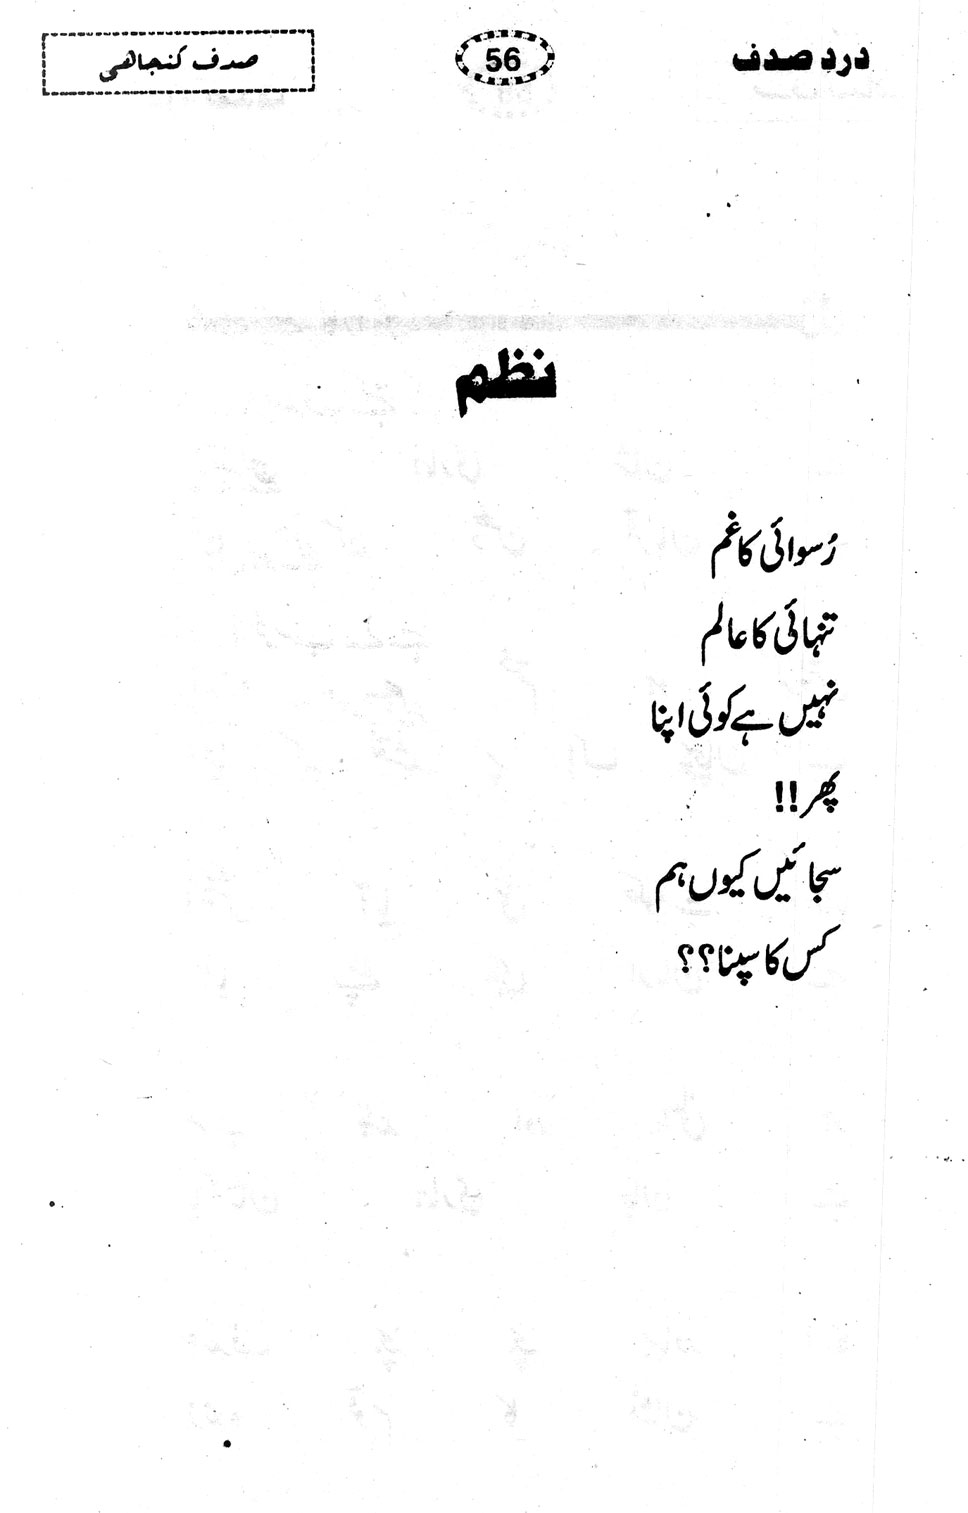 درد صدف
56
صدف کنجاھی
نظم
رُسوائی کا غم
تنہائی کا عالم
نہیں ہے کوئی اپنا
پھر!!
سجائیں کیوں ہم
کس کا سپنا؟؟